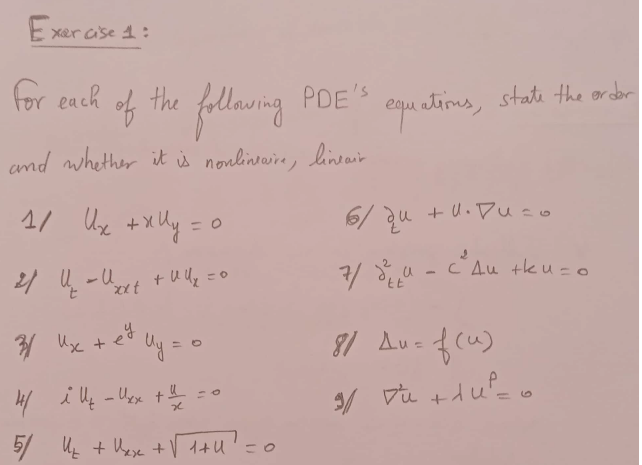 Exercise 1:
For each of the following PDE's equations, state the order
and whether it is nonlineaire, lineair
1/ Uₓ + x U_y = 0
2/ U_t - U_xxt + U Uₓ = 0
3/ Uₓ + e^y U_y = 0
4/ i U_t - U_xx + U/x = 0
5/ U_t + U_xx + √(1+U) = 0
6/ ∂_t u + U·∇u = 0
7/ ∂²_tt u - c²Δu + ku = 0
8/ Δu = f(u)
9/ ∇²u + λu^p = 0